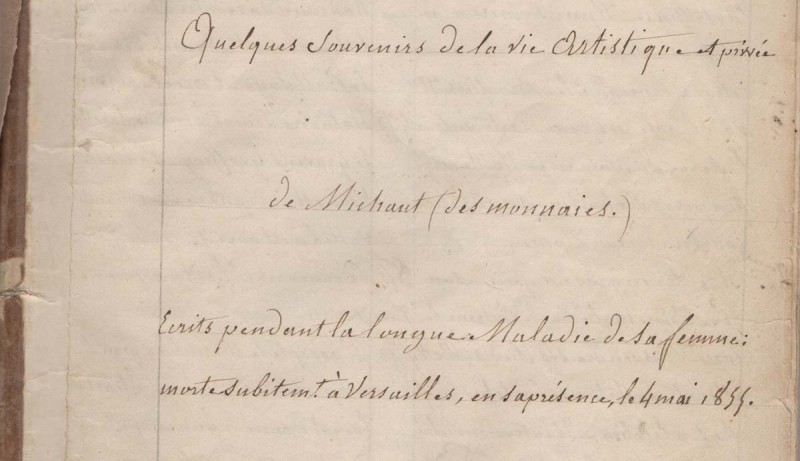 Quelques Souvenirs de la vie Artistique et privée
de Michaut (des monnaies.)
Ecrits pendant la longue Maladie de sa femme;
morte subitemt. à Versailles, en sa présence, le 4 mai 1855.